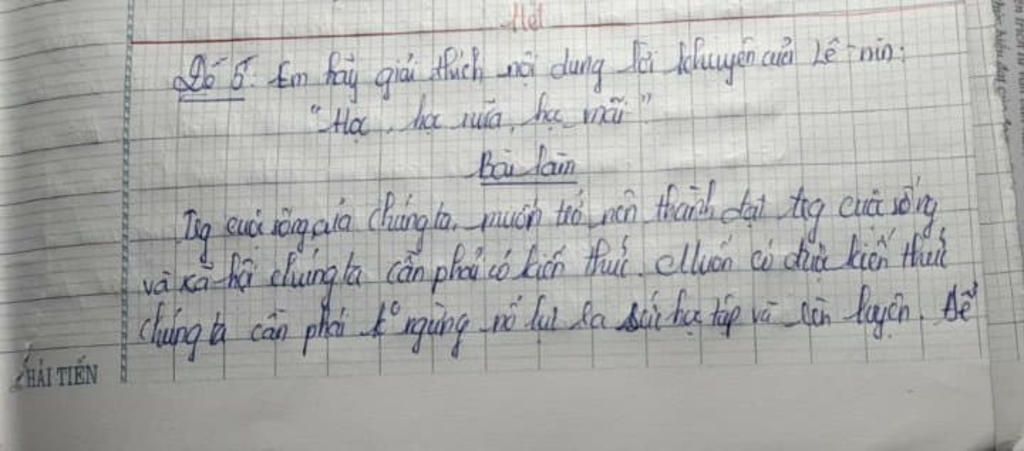 Hết
Đề 5: Em hãy giải thích nội dung lời khuyên của Lê-nin:
"Học, học nữa, học mãi"
Bài làm
Trg cuộc sống của chúng ta, muốn trở nên thành đạt trg cuộc sống
và xã hội chúng ta cần phải có kiến thức. Muốn có được kiến thức
chúng ta cần phải kº ngừng nỗ lực ra sức học tập và rèn luyện. Để
HẢI TIẾN